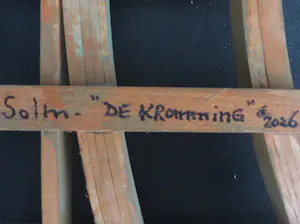 Solm - "DE KRomming" © 2026